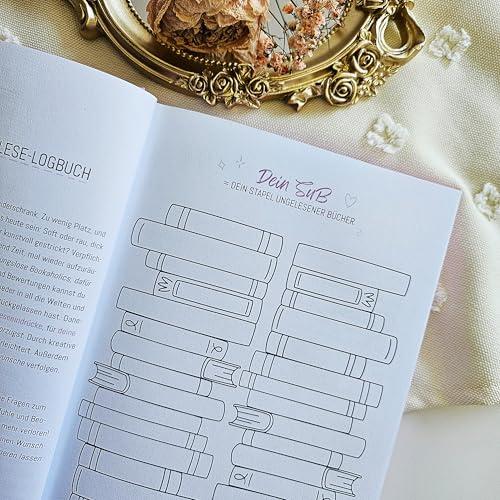 LESE-LOGBUCH
nderschrank: Zu wenig Platz, und
s heute sein: Soft oder rau, dick
r kunstvoll gestrickt? Verpflich-
nd Zeit, mal wieder aufzuräu-
ngslose Bookaholics, dafür
d Bewertungen kannst du
eder in all die Welten und
rückgelassen hast. Dane-
eseeindrücke, für deine
rzugst. Durch kreative
rleichtert. Außerdem
ünsche verfolgen.
e Fragen zum
ühle und Ben-
mehr verloren!
inen Wunsch-
eren lassen
Dein SuB
= DEIN STAPEL UNGELESENER BÜCHER